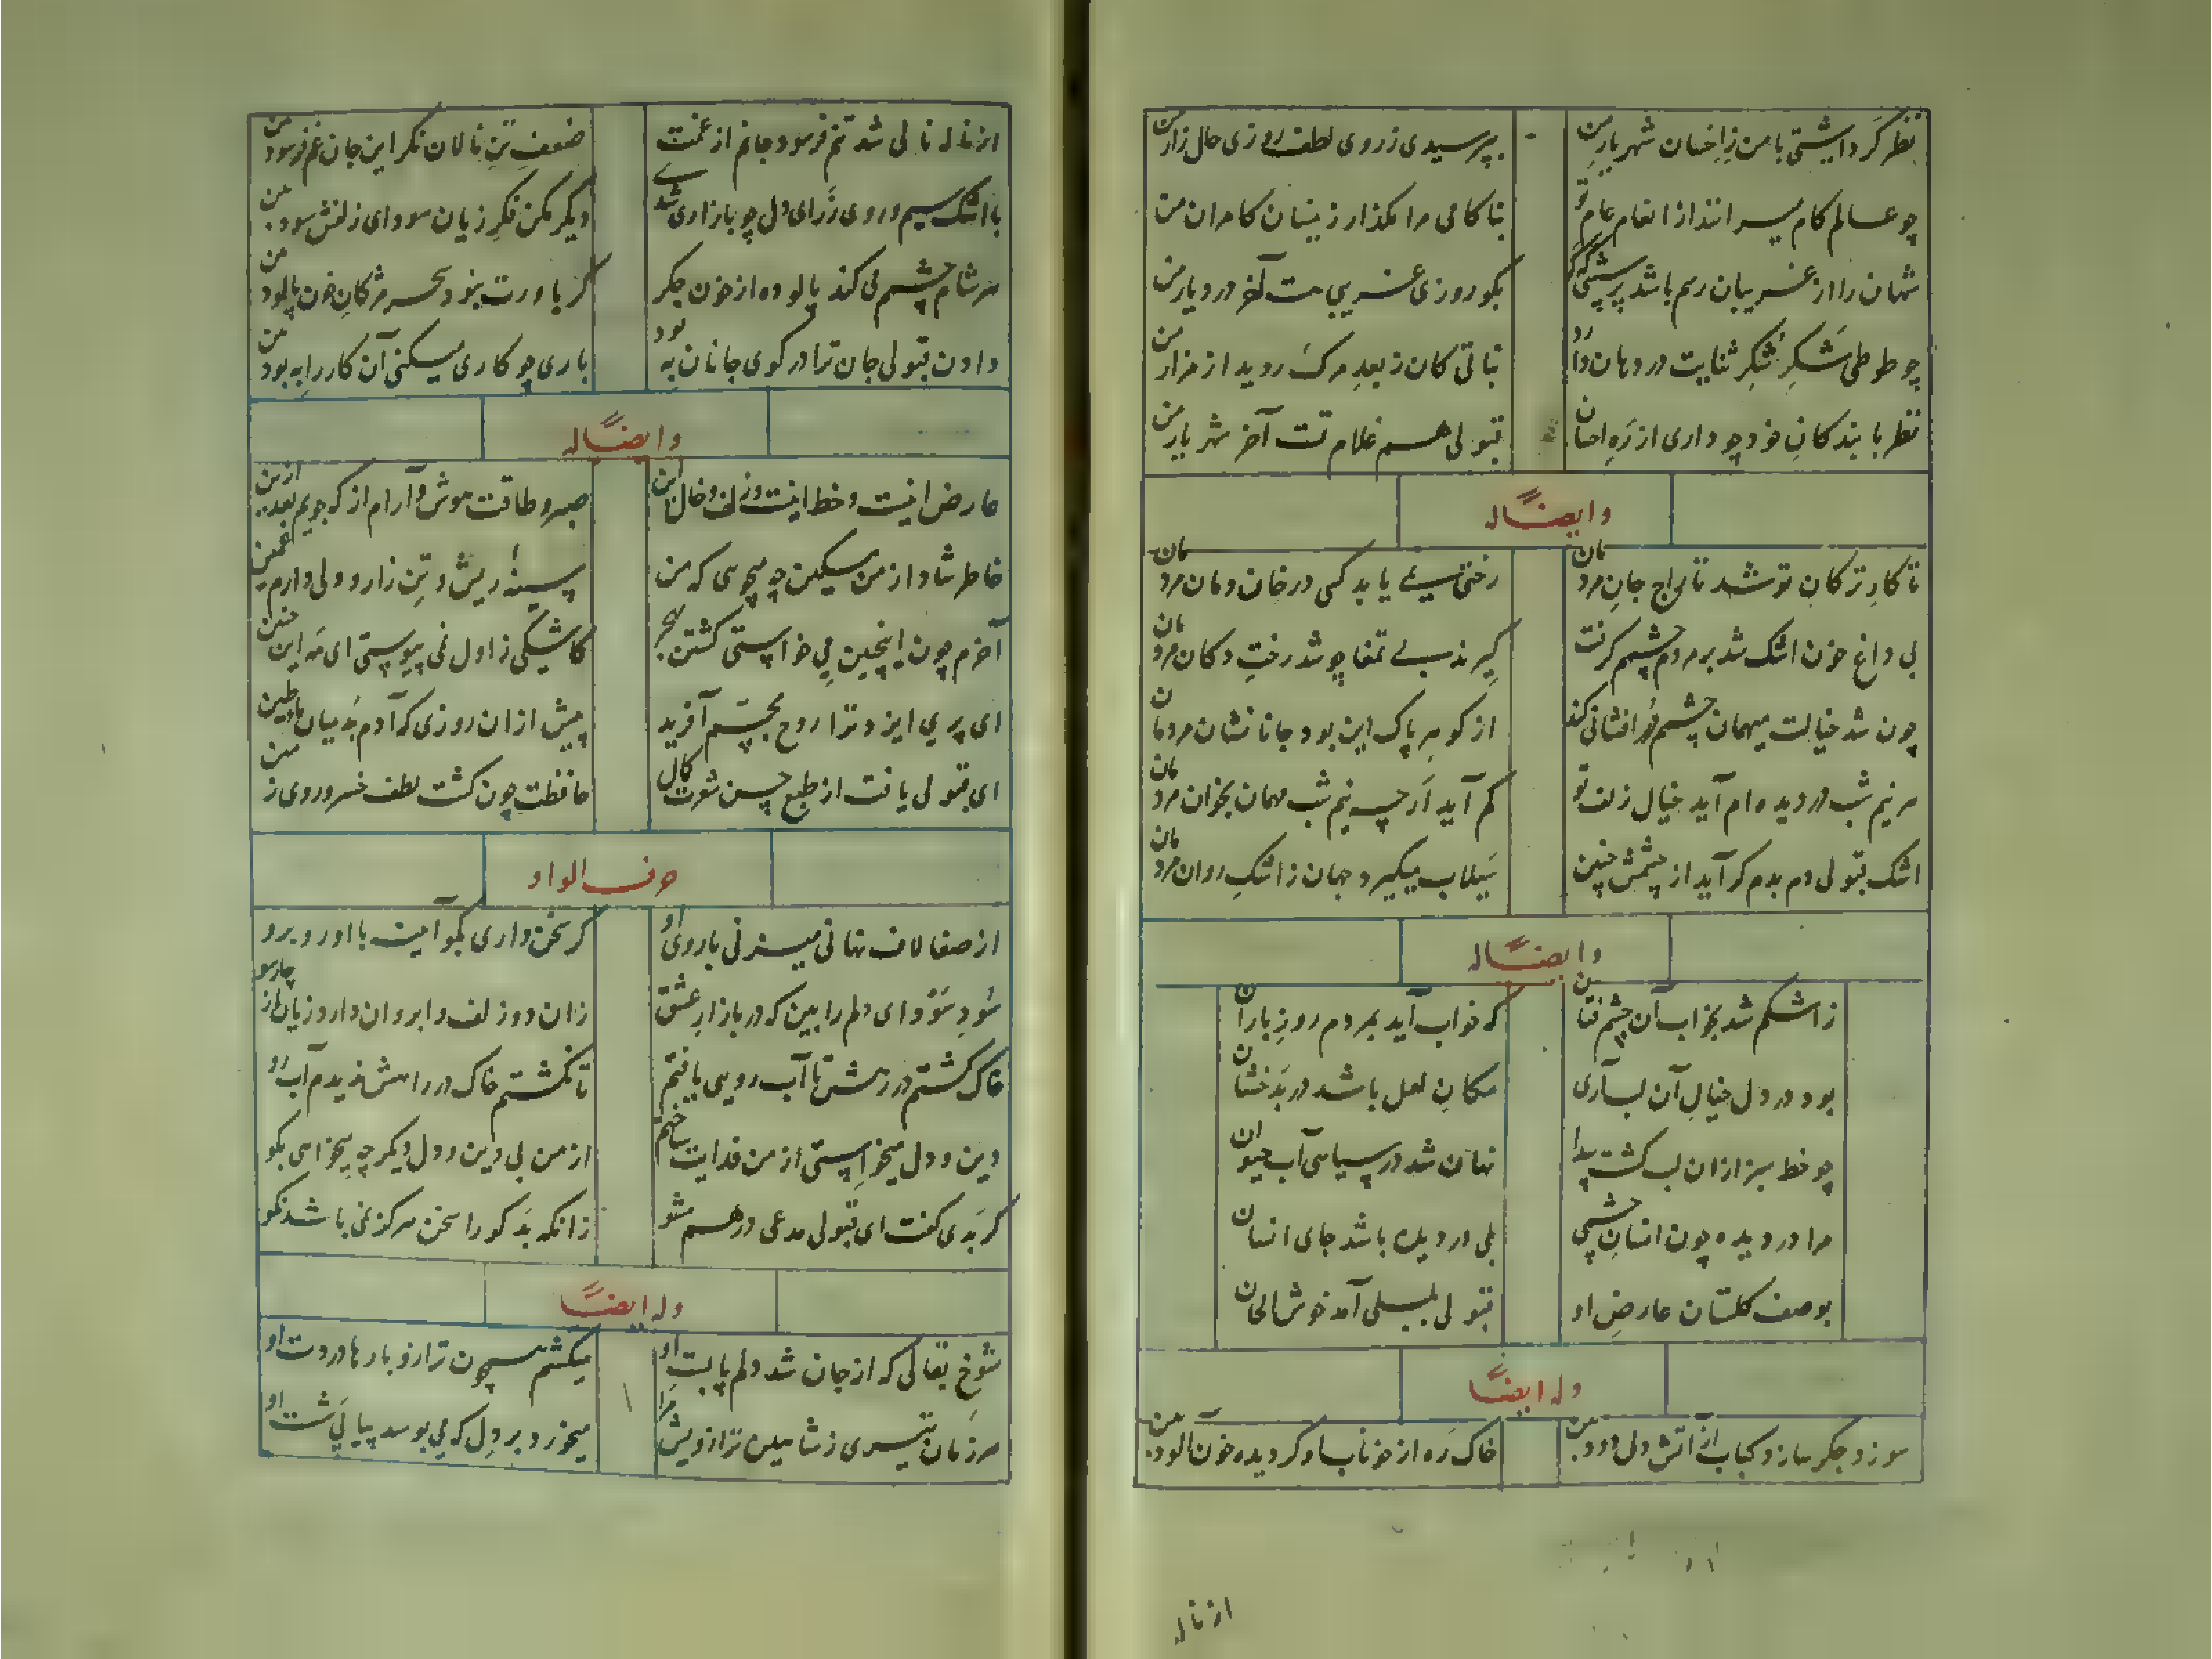 نظر گر داشتی با من ز احسان شهریار من
بپرسیدی ز روی لطف روزی حال زار من
چو عالم کام میرانند از انعام عام تو
بناکامی مرا مگذار زینسان کامران من
شهان را از غریبان رسم باشد پرسشی گه گه
بگو روزی غریبی هست آخر در دیار من
چو طوطی شکر شکر ثنایت در دهان دارد
نباتی کان ز بعد مرگ روید از مزار من
نظر با بندگان خود چو داری از ره احسان
قبولی هم غلام تست آخر شهریار من
وایضا له
تا کار ترکان تو شد تاراج جان مردمان
رختی نمی یابد کسی در خان و مان مردمان
بی داغ خون اشک شد بر مردم چشمم گرفت
گیرند بی تمغا چو شد رخت دکان مردمان
چون شد خیالت میهمان چشمم در افشانی کند
از گوهر پاک این بود جانا نشان مردمان
هر نیم شب در دیده ام آید خیال زلف تو
کم آید ار چه نیم شب مهمان بخوان مردمان
اشک قبولی دم بدم گر آید از چشمش چنین
سیلاب میگیرد جهان ز اشک روان مردمان
وایضا له
ز اشکم شد بخواب آن چشم فتان
که خواب آید بمردم روز باران
بود در دل خیال آن لب آری
مکان لعل باشد در بدخشان
چو خط سبز ازان لب گشت پیدا
نهان شد در سیاهی آب حیوان
مرا در دیده چون انسان چشمی
بلی در دیده باشد جای انسان
بوصف گلستان عارض او
قبولی بلبلی آمد خوش الحان
وله ایضا
سوزد جگر سازد کباب از آتش دل دود من
خاک ره از خوناب او گر دیده خون آلود من
از ناله
از ناله نالی شد تنم فرسود جانم از غمت
ضعف تن نالان نگر این جان غم فرسود من
با اشک سیم و روی زر ای دل چو بازاری شدی
دیگر مکن فکر زیان سودای زلفش سود من
هر شام چشمم می کند پالوده از خون جگر
گر باورت نبود سحر مژگان خون پالود من
دادن قبولی جان ترا در کوی جانان به بود
باری چو کاری میکنی آن کار را به بود من
وایضا له
عارض اینست و خط اینست و زلف و خال این
صبر و طاقت هوش و آرام از که جویم بعد ازین
خاطر شاد از من مسکین چه میجویی که من
سینه ریش و تن زار و دلی دارم غمین
آخرم چون اینچنین می خواستی کشتن بهجر
کاشکی ز اول نمی پیوستی ای مه این چنین
ای پری ایزد ترا روح مجسم آفرید
پیش ازان روزی که آدم بد میان ما و طین
ای قبولی یافت از طبع حسن شعرت کمال
حافظت چون گشت لطف خسرو روی زمین
حرف الواو
از صفا لاف نهانی میزنی با روی او
گر سخن داری بگو آیینه با او رو برو
سود سودای دلم را بین که در بازار عشق
زان دو زلف و ابروان دارد زیان از چارسو
خاک گشتم در رهش تا آب رویی یافتم
تا نگشتم خاک در راهش ندیدم آب رو
دین و دل میخواستی از من فدایت ساختم
از من بی دین و دل دیگر چه میخواهی بگو
گر بدی گفت ای قبولی مدعی درهم مشو
زانکه بد گو را سخن هرگز نمی باشد نکو
وله ایضا
شوخ بقالی که از جان شد دلم پا بست او
میکشم همچون ترازو بارها در دست او
هر زمان تیری ز شاهین ترازویش مرا
میخورد بر دل که می بوسد پیاپی شست او